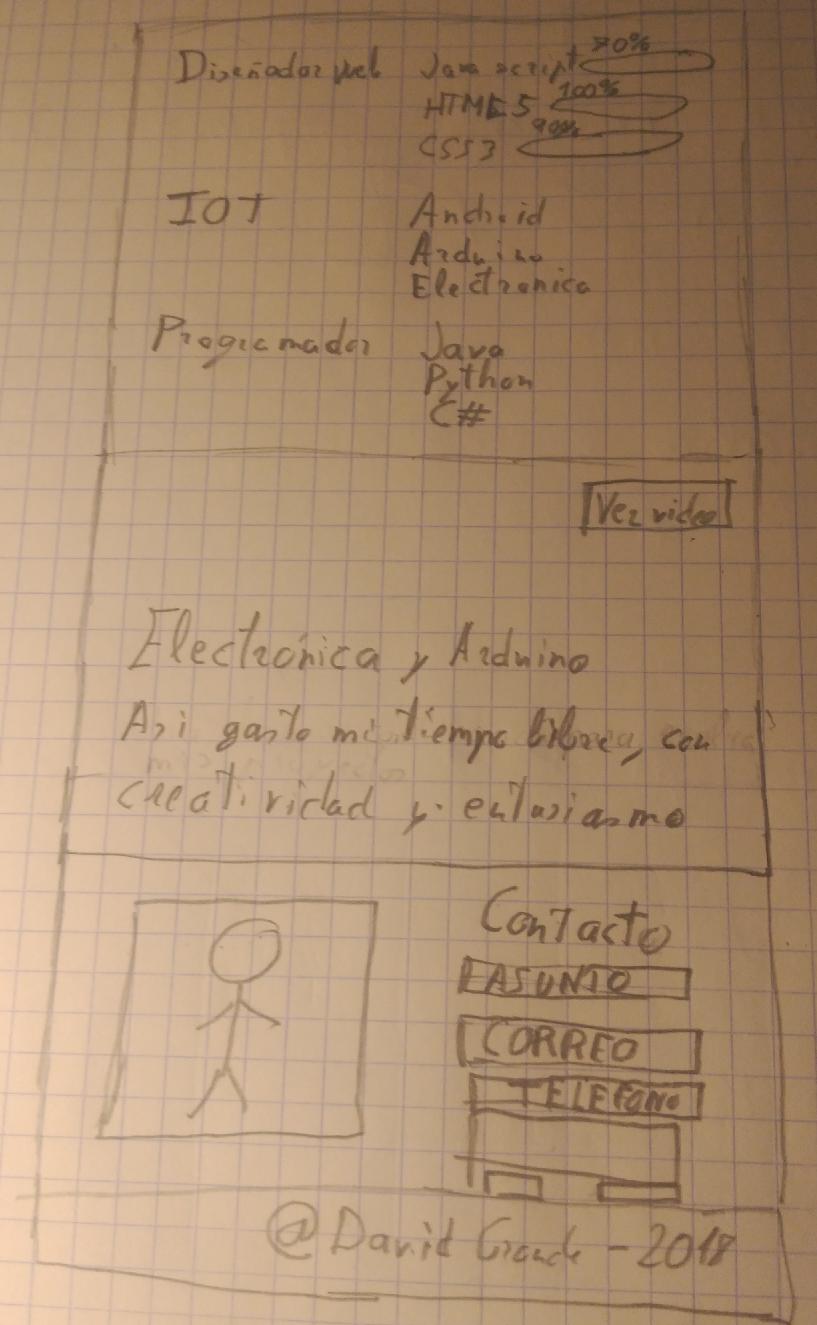 Diseñador web Java script 70%
HTML5 100%
CSS3 90%
IOT Android
Arduino
Electronica
Programador Java
Python
C#
Ver video
Electrónica y Arduino
Asi gasto mi tiempo libre, con
creatividad y entusiasmo
Contacto
ASUNTO
CORREO
TELEFONO
@David - 2018